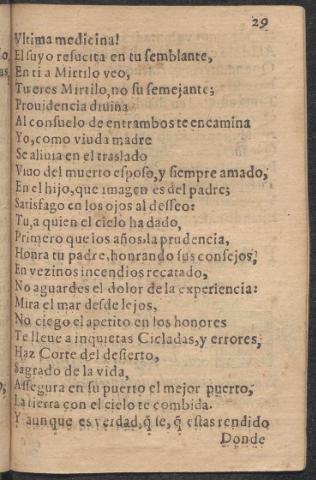 29
Vltima medicina!
El suyo resucita en tu semblante,
En ti a Mirtilo veo,
Tu eres Mirtilo, no su semejante;
Prouidencia diuina
Al consuelo de entrambos te encamina
Yo, como viuda madre
Se aliuia en el traslado
Viuo del muerto esposo, y siempre amado,
En el hijo, que imagen es del padre;
Satisfago en los ojos al desseo:
Tu, a quien el cielo ha dado,
Primero que los años, la prudencia,
Honra tu padre, honrando sus consejos,
En vezinos incendios recatado,
No aguardes el dolor de la experiencia:
Mira el mar desde lejos,
No ciego el apetito en los honores
Te lleue a inquietas Cicladas, y errores,
Haz Corte del desierto,
Sagrado de la vida,
Assegura en su puerto el mejor puerto,
La tierra con el cielo te combida.
Y aunque es verdad, q̃ se, q̃ estas rendido
Donde